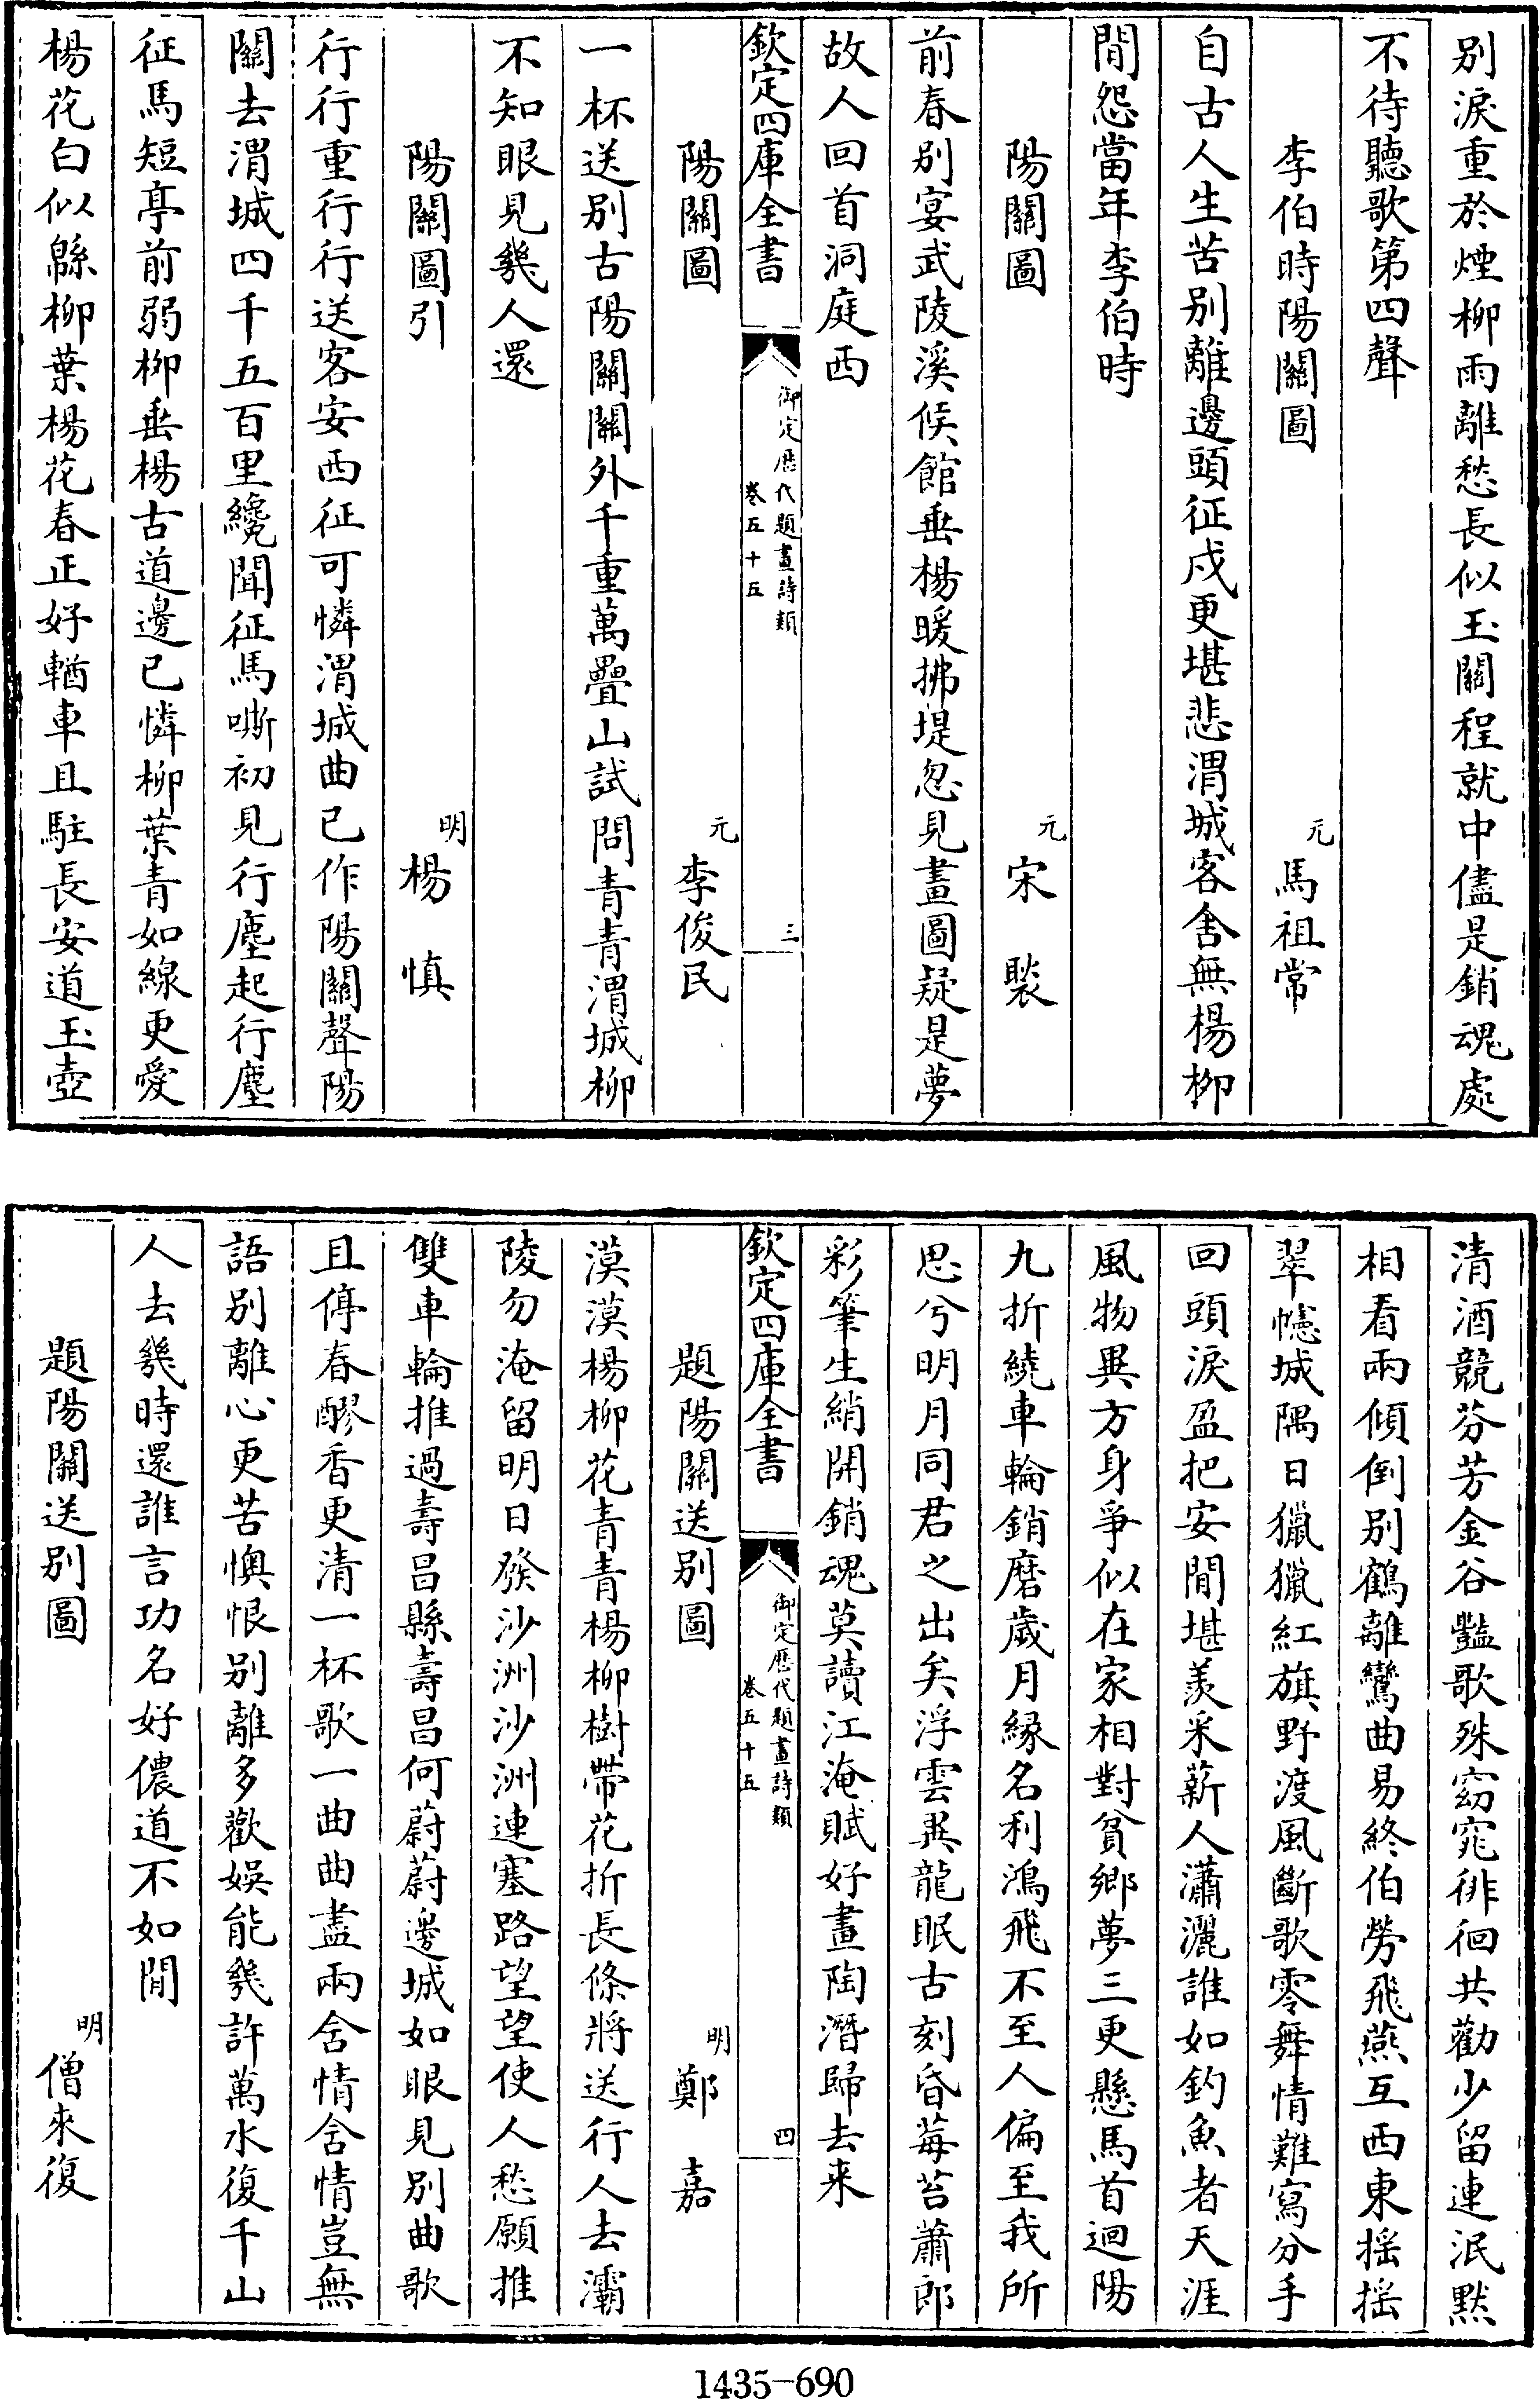 别淚重於煙柳雨離愁長似玉關程就中儘是銷魂處
不待聽歌第四聲
李伯時陽關圖 元 馬祖常
自古人生苦別離邊頭征戍更堪悲渭城客舍無楊柳
閒怨當年李伯時
陽關圖 元 宋褧
前春别宴武陵溪候館垂楊暖拂堤忽見畫圖疑是夢
故人回首洞庭西
欽定四庫全書 御定歴代題畫詩類 卷五十五 三
陽關圖 元 李俊民
一杯送别古陽關關外千重萬疊山試問青青渭城柳
不知眼見幾人還
陽關圖引 明 楊慎
行行重行行送客安西征可憐渭城曲已作陽關聲陽
關去渭城四千五百里纔聞征馬嘶初見行塵起行塵
征馬短亭前弱柳垂楊古道邊已憐柳葉青如線更愛
楊花白似緜柳葉楊花春正好輶車且駐長安道玉壺
清酒競芬芳金谷豔歌殊窈窕徘徊共勸少留連泯默
相看兩傾倒别鶴離鸞曲易終伯勞飛燕互西東揺揺
翠幰城隅日獵獵紅旗野渡風斷歌零舞情難寫分手
回頭淚盈把安閒堪羡采薪人瀟灑誰如釣魚者天涯
風物異方身爭似在家相對貧鄉夢三更懸馬首迴陽
九折繞車輪銷磨歲月縁名利鴻飛不至人偏至我所
思兮明月同君之出矣浮雲異龍眠古刻昏莓苔蕭郎
彩筆生綃開銷魂莫讀江淹賦好畫陶潛歸去来
欽定四庫全書 御定歴代題畫詩類 卷五十五 四
題陽關送别圖 明 鄭嘉
漠漠楊柳花青青楊柳樹帶花折長條將送行人去灞
陵勿淹留明日發沙洲沙洲連塞路望望使人愁願推
雙車輪推過壽昌縣壽昌何蔚蔚邊城如眼見别曲歌
且停春醪香更清一杯歌一曲曲盡兩含情含情豈無
語别離心更苦懊恨别離多歡娛能幾許萬水復千山
人去幾時還誰言功名好儂道不如閒
題陽關送别圖 明 僧來復
1435-690